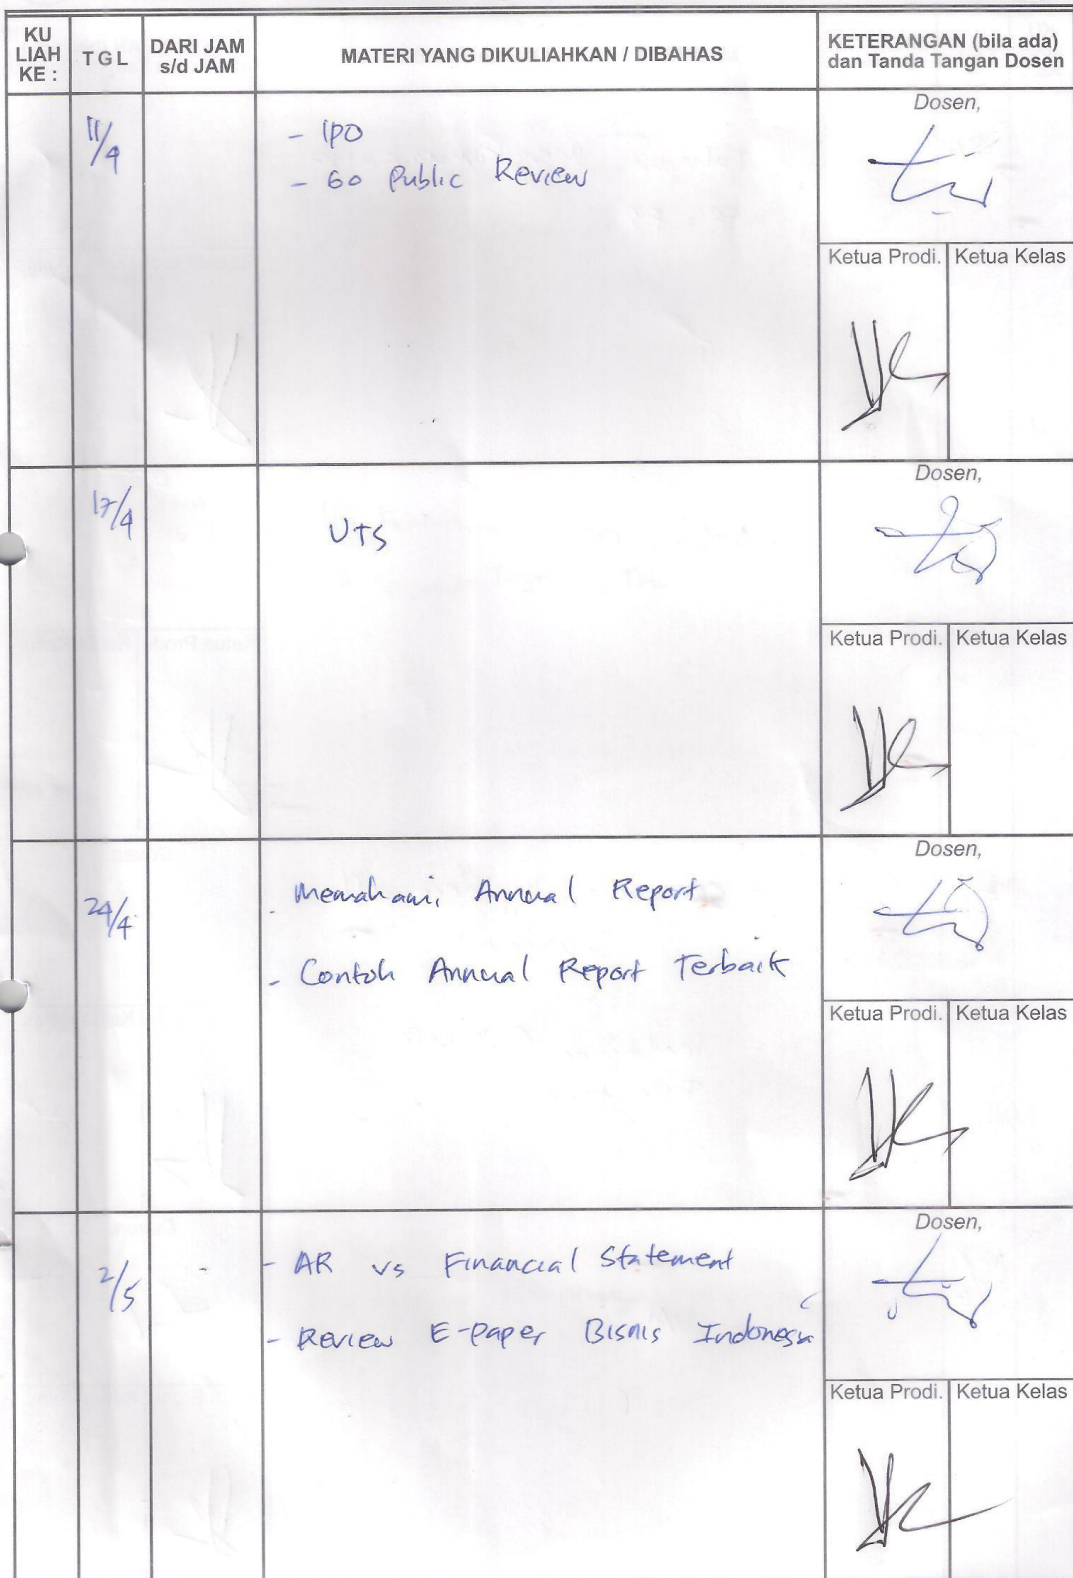 KU LIAH KE :
TGL
DARI JAM s/d JAM
MATERI YANG DIKULIAHKAN / DIBAHAS
KETERANGAN (bila ada) dan Tanda Tangan Dosen
11/4
- IPO
- Go Public Review
Dosen,
Ketua Prodi.
Ketua Kelas
17/4
UTS
Dosen,
Ketua Prodi.
Ketua Kelas
24/4
- Memahami Annual Report
- Contoh Annual Report Terbaik
Dosen,
Ketua Prodi.
Ketua Kelas
2/5
- AR vs Financial Statement
- Review E-Paper Bisnis Indonesia
Dosen,
Ketua Prodi.
Ketua Kelas